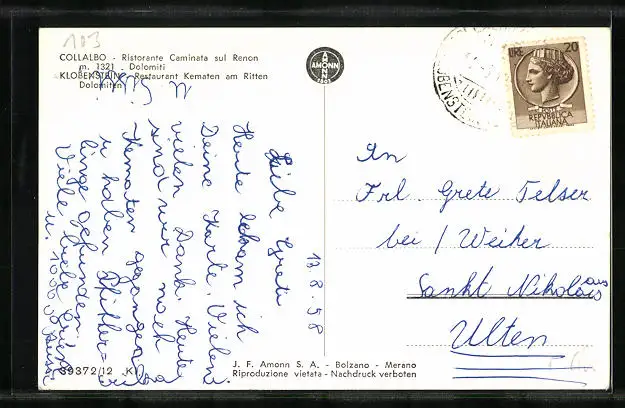 103
COLLALBO - Ristorante Caminata sul Renon
m. 1321 - Dolomiti
KLOBENSTEIN - Restaurant Kematen am Ritten
Dolomiten
AMONN
LIRE 20
POSTE
REPVBBLICA
ITALIANA
13.8.58
Liebe Greti
Heute bekam ich
Deine Karte. Vielen
vielen Dank. Heute
sind wir nach
Kematen gegangen
haben Pfifferlinge gefunden
Viele liebe Grüsse
u. 1000 Bussi
An
Frl. Grete Telser
bei / Weiher
Sankt Nikolaus
Ulten
39372/12 K
J. F. Amonn S. A. - Bolzano - Merano
Riproduzione vietata - Nachdruck verboten